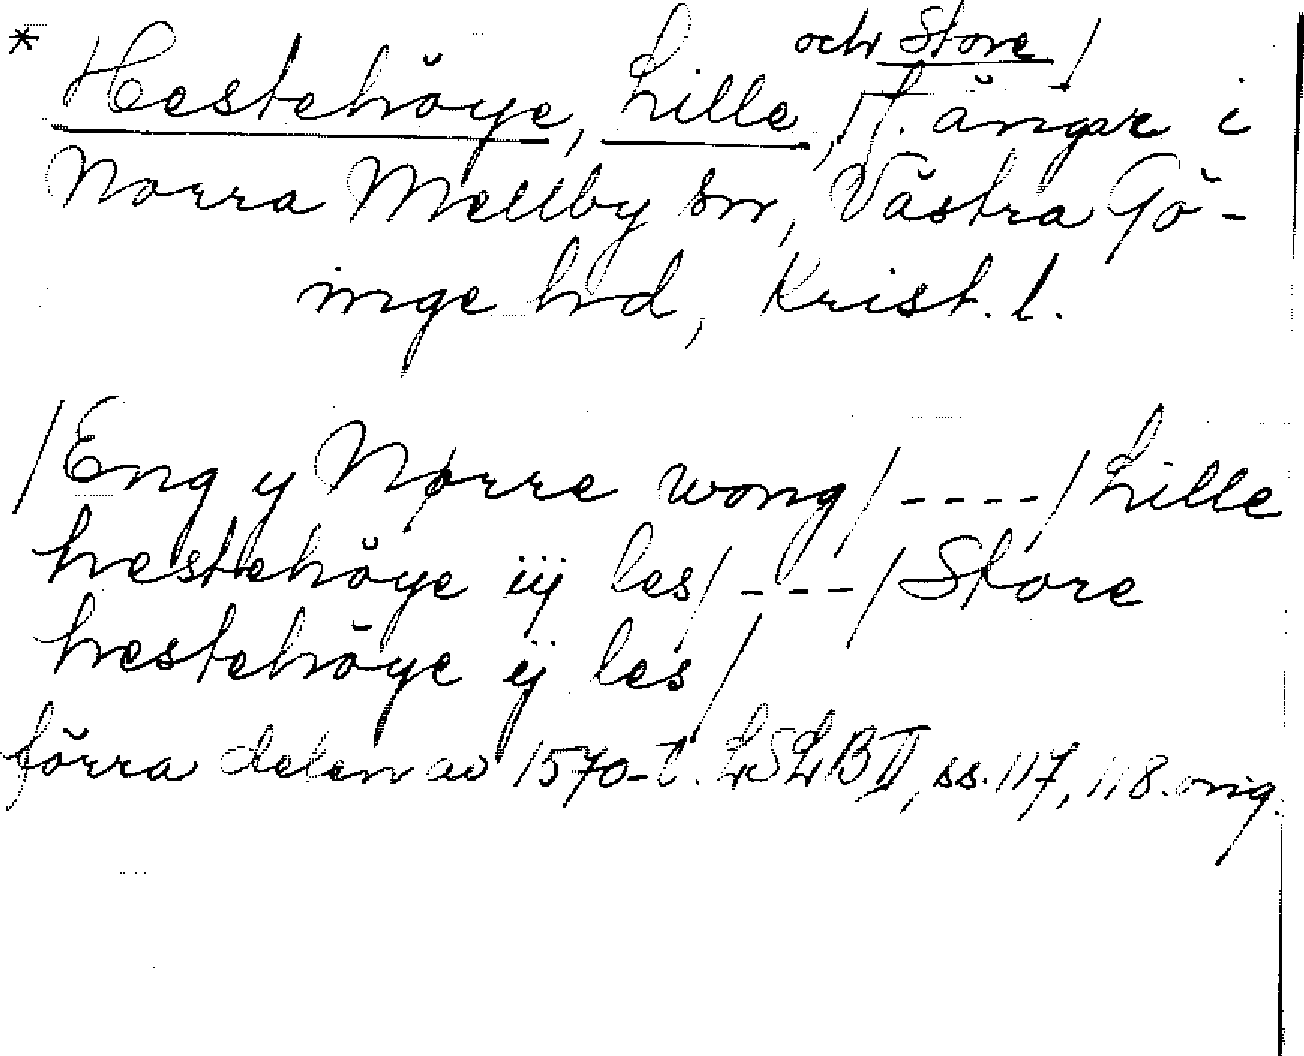 och Store/
* Hestehöye, Lille, f. ängar i
Norra Mellby sn, Västra Gö-
inge hd, Krist. l.
/Eng y Nørre wong/----/Lille
hestehöye iij les/---/Store
hestehöye ij les/
förra delen av 1570-t. LSLB II, ss. 117, 118. orig.